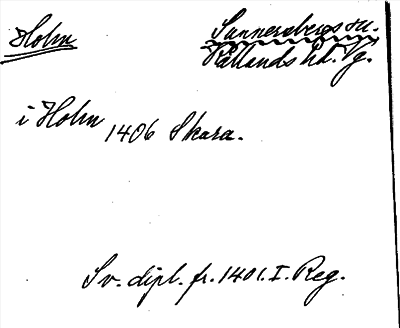 Holm
Sunnersbergs sn.
Kållands hd. Vg.
i Holm 1406 Skara.
Sv. dipl. fr. 1401. I. Reg.